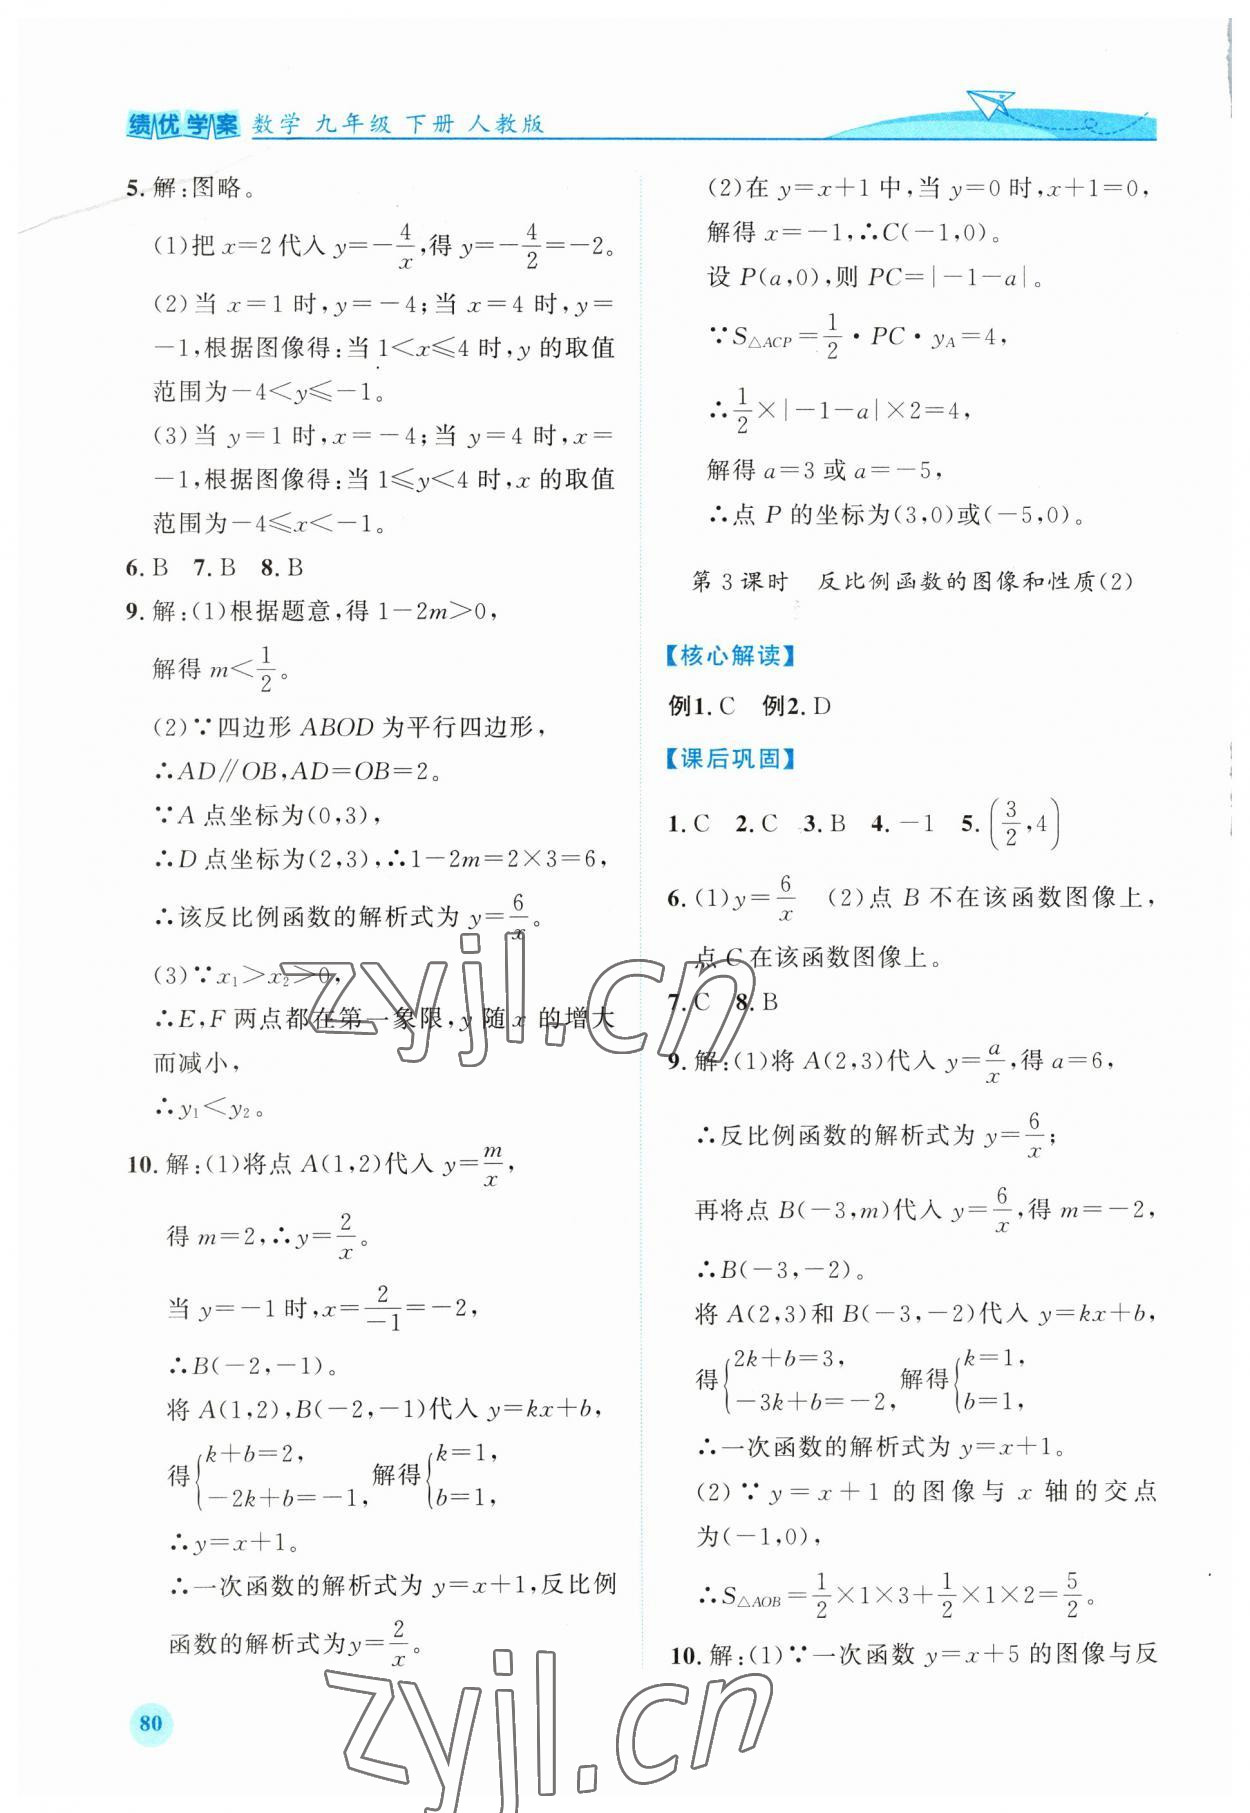 绩优学案 数学 九年级 下册 人教版
5. 解:图略。
(1)把 x=2代入 y=-4/x,得 y=-4/2=-2。
(2)当 x=1 时,y=-4;当 x=4 时,y=
-1,根据图像得:当 1<x≤4 时,y 的取值
范围为-4<y≤-1。
(3)当 y=1 时,x=-4;当 y=4 时,x=
-1,根据图像得:当 1≤y<4 时,x 的取值
范围为-4≤x<-1。
6. B 7. B 8. B
9. 解:(1)根据题意,得 1-2m>0,
解得 m<1/2。
(2)∵四边形 ABOD 为平行四边形,
∴AD∥OB,AD=OB=2。
∵A 点坐标为(0,3),
∴D 点坐标为(2,3),∴1-2m=2×3=6,
∴该反比例函数的解析式为 y=6/x。
(3)∵x₁>x₂>0,
∴E,F 两点都在第一象限,y 随 x 的增大
而减小,
∴y₁<y₂。
10. 解:(1)将点 A(1,2)代入 y=m/x,
得 m=2,∴y=2/x。
当 y=-1时,x=2/-1=-2,
∴B(-2,-1)。
将 A(1,2),B(-2,-1)代入 y=kx+b,
得{k+b=2, -2k+b=-1, 解得{k=1, b=1,
∴y=x+1。
∴一次函数的解析式为 y=x+1,反比例
函数的解析式为y=2/x。
80
(2)在 y=x+1 中,当 y=0 时,x+1=0,
解得 x=-1,∴C(-1,0)。
设 P(a,0),则 PC=|-1-a|。
∵S△ACP=1/2·PC·yA=4,
∴1/2×|-1-a|×2=4,
解得 a=3 或 a=-5,
∴点 P 的坐标为(3,0)或(-5,0)。
第 3 课时 反比例函数的图像和性质(2)
【核心解读】
例1. C 例2. D
【课后巩固】
1. C 2. C 3. B 4. -1 5. (3/2,4)
6. (1)y=6/x (2)点 B 不在该函数图像上,
点 C 在该函数图像上。
7. C 8. B
9. 解:(1)将 A(2,3)代入 y=a/x,得 a=6,
∴反比例函数的解析式为 y=6/x;
再将点 B(-3,m)代入 y=6/x,得 m=-2,
∴B(-3,-2)。
将 A(2,3)和 B(-3,-2)代入 y=kx+b,
得{2k+b=3, -3k+b=-2, 解得{k=1, b=1,
∴一次函数的解析式为 y=x+1。
(2)∵y=x+1 的图像与 x 轴的交点
为(-1,0),
∴S△AOB=1/2×1×3+1/2×1×2=5/2。
10. 解:(1)∵一次函数 y=x+5 的图像与反
zyjl.cn
zyjl.cn